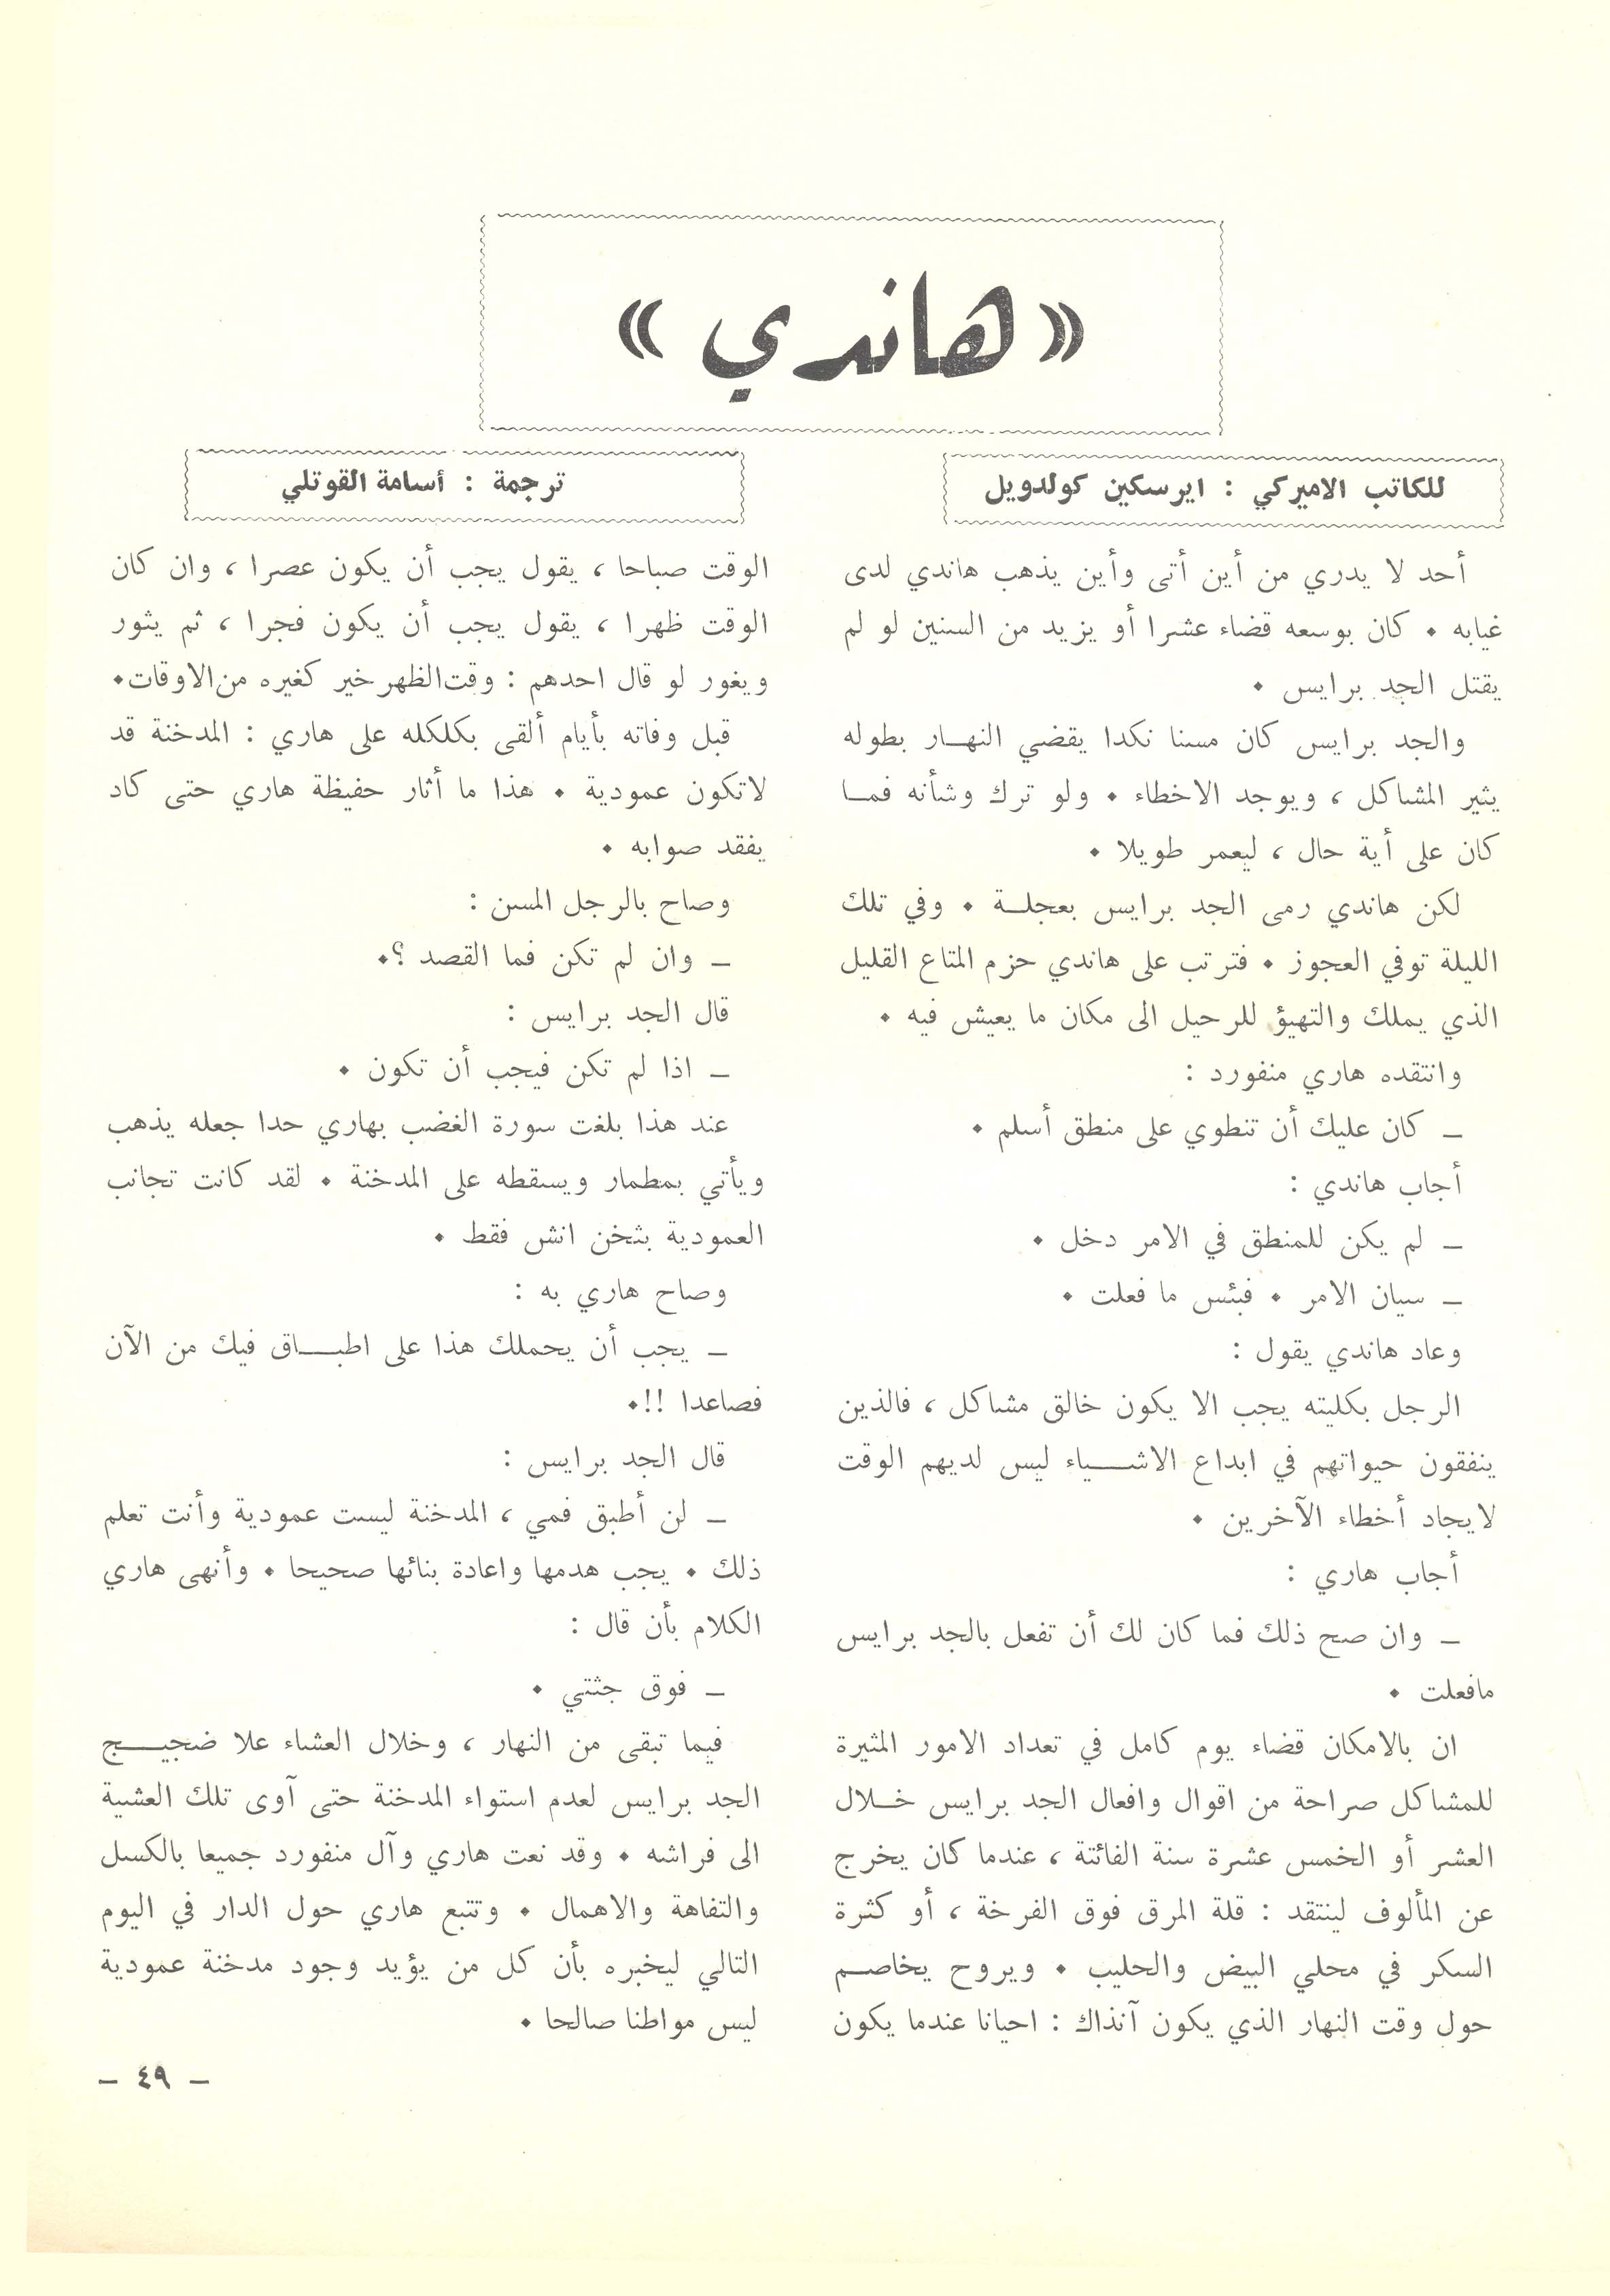 « هاندي »
للكاتب الاميركي : ايرسكين كولدويل
ترجمة : أسامة القوتلي
أحد لا يدري من أين أتى وأين يذهب هاندي لدى
غيابه . كان بوسعه قضاء عشرا أو يزيد من السنين لو لم
يقتل الجد برايس .
والجد برايس كان مسنا نكدا يقضي النهار بطوله
يثير المشاكل ، ويوجد الاخطاء . ولو ترك وشأنه فما
كان على أية حال ، ليعمر طويلا .
لكن هاندي رمى الجد برايس بعجلة . وفي تلك
الليلة توفي العجوز . فترتب على هاندي حزم المتاع القليل
الذي يملك والتهيؤ للرحيل الى مكان ما يعيش فيه .
وانتقده هاري منفورد :
– كان عليك أن تنطوي على منطق أسلم .
أجاب هاندي :
– لم يكن للمنطق في الامر دخل .
– سيان الامر . فبئس ما فعلت .
وعاد هاندي يقول :
الرجل بكليته يجب الا يكون خالق مشاكل ، فالذين
ينفقون حيواتهم في ابداع الاشياء ليس لديهم الوقت
لايجاد أخطاء الآخرين .
أجاب هاري :
– وان صح ذلك فما كان لك أن تفعل بالجد برايس
مافعلت .
ان بالامكان قضاء يوم كامل في تعداد الامور المثيرة
للمشاكل صراحة من اقوال وافعال الجد برايس خلال
العشر أو الخمس عشرة سنة الفائتة ، عندما كان يخرج
عن المألوف لينتقد : قلة المرق فوق الفرخة ، أو كثرة
السكر في محلي البيض والحليب . ويروح يخاصم
حول وقت النهار الذي يكون آنذاك : احيانا عندما يكون
الوقت صباحا ، يقول يجب أن يكون عصرا ، وان كان
الوقت ظهرا ، يقول يجب أن يكون فجرا ، ثم يثور
ويغور لو قال احدهم : وقت الظهر خير كغيره من الاوقات.
قبل وفاته بأيام ألقى بكلكله على هاري : المدخنة قد
لاتكون عمودية . هذا ما أثار حفيظة هاري حتى كاد
يفقد صوابه .
وصاح بالرجل المسن :
– وان لم تكن فما القصد ؟.
قال الجد برايس :
– اذا لم تكن فيجب أن تكون .
عند هذا بلغت سورة الغضب بهاري حدا جعله يذهب
ويأتي بمطمار ويسقطه على المدخنة . لقد كانت تجانب
العمودية بثخن انش فقط .
وصاح هاري به :
– يجب أن يحملك هذا على اطباق فيك من الآن
فصاعدا !!.
قال الجد برايس :
– لن أطبق فمي ، المدخنة ليست عمودية وأنت تعلم
ذلك . يجب هدمها واعادة بنائها صحيحا . وأنهى هاري
الكلام بأن قال :
– فوق جثتي .
فيما تبقى من النهار ، وخلال العشاء علا ضجيج
الجد برايس لعدم استواء المدخنة حتى آوى تلك العشية
الى فراشه . وقد نعت هاري وآل منفورد جميعا بالكسل
والتفاهة والاهمال . وتتبع هاري حول الدار في اليوم
التالي ليخبره بأن كل من يؤيد وجود مدخنة عمودية
ليس مواطنا صالحا .
– ٤٩ –